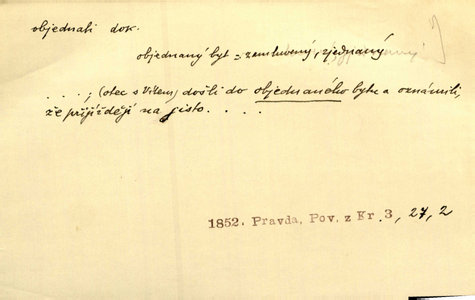 objednati dok.
objednaný byt = zamluvený, zjednaný
. . . ; (otec s Vítem) došli do objednaného bytu a oznámili,
že přijíždějí na jisto. . . .
1852. Pravda, Pov. z Kr. 3, 27, 2